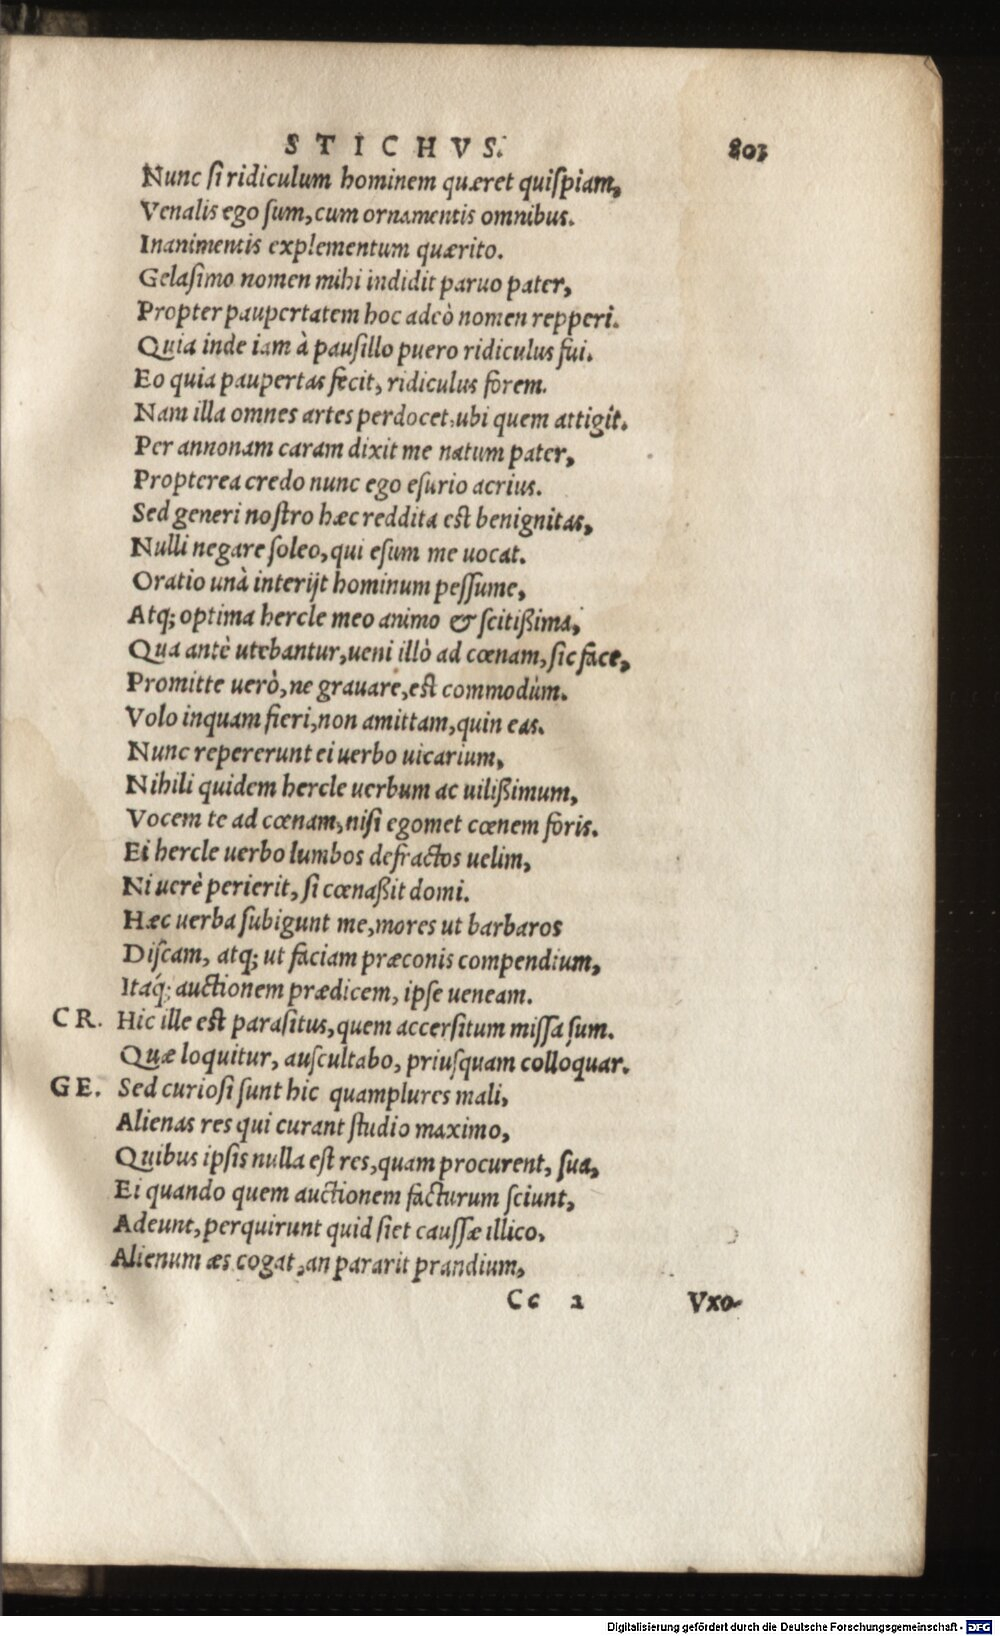 STICHVS. 803
Nunc ſi ridiculum hominem quæret quiſpiam,
Venalis ego ſum, cum ornamentis omnibus.
Inanimentis explementum quærito.
Gelaſimo nomen mihi indidit paruo pater,
Propter paupertatem hoc adeò nomen repperi.
Quia inde iam à pauſillo puero ridiculus fui.
Eo quia paupertas fecit, ridiculus forem.
Nam illa omnes artes perdocet, ubi quem attigit.
Per annonam caram dixit me natum pater,
Propterea credo nunc ego eſurio acrius.
Sed generi noſtro hæc reddita eſt benignitas,
Nulli negare ſoleo, qui eſum me uocat.
Oratio unà interijt hominum peſſume,
Atq; optima hercle meo animo & ſcitißima,
Qua antè utebantur, ueni illò ad cœnam, ſic face,
Promitte uerò, ne grauare, eſt commodùm.
Volo inquam fieri, non amittam, quin eas.
Nunc repererunt ei uerbo uicarium,
Nihili quidem hercle uerbum ac uilißimum,
Vocem te ad cœnam, niſi egomet cœnem foris.
Ei hercle uerbo lumbos defractos uelim,
Ni uerè perierit, ſi cœnaßit domi.
Hæc uerba ſubigunt me, mores ut barbaros
Diſcam, atq; ut faciam præconis compendium,
Itáq; auctionem prædicem, ipſe ueneam.
CR. Hic ille eſt paraſitus, quem accerſitum miſſa ſum.
Quæ loquitur, auſcultabo, priuſquam colloquar.
GE. Sed curioſi ſunt hic quamplures mali,
Alienas res qui curant ſtudio maximo,
Quibus ipſis nulla eſt res, quam procurent, ſua,
Ei quando quem auctionem facturum ſciunt,
Adeunt, perquirunt quid ſiet cauſſæ illico,
Alienum æs cogat, an pararit prandium,
Cc 2 Vxo-
Digitalisierung gefördert durch die Deutsche Forschungsgemeinschaft - DFG